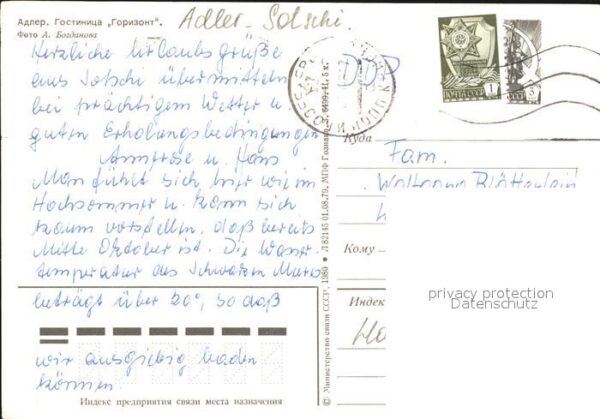 Адлер. Гостиница „Горизонт".
Фото А. Богданова
Adler-Sotschi.
Herzliche Urlaubsgrüße
aus Sotschi übermitteln
bei prächtigem Wetter u.
guten Erholungsbedingungen
Annrose u. Hans
Man fühlt sich hier wie im
Hochsommer u. kann sich
kaum vorstellen, daß bereits
Mitte Oktober ist. Die Wasser-
temperatur des Schwarzen Meeres
beträgt über 20°, so daß
wir ausgiebig baden
können
Индекс предприятия связи места назначения
© Министерство связи СССР, 1980 • Л 82145 01.08.79. МПФ Гознака.
DDR
ПОЧТА СССР 1
Куда
Fam.
Wolfgang
Кому
Индекс
privacy protection
Datenschutz